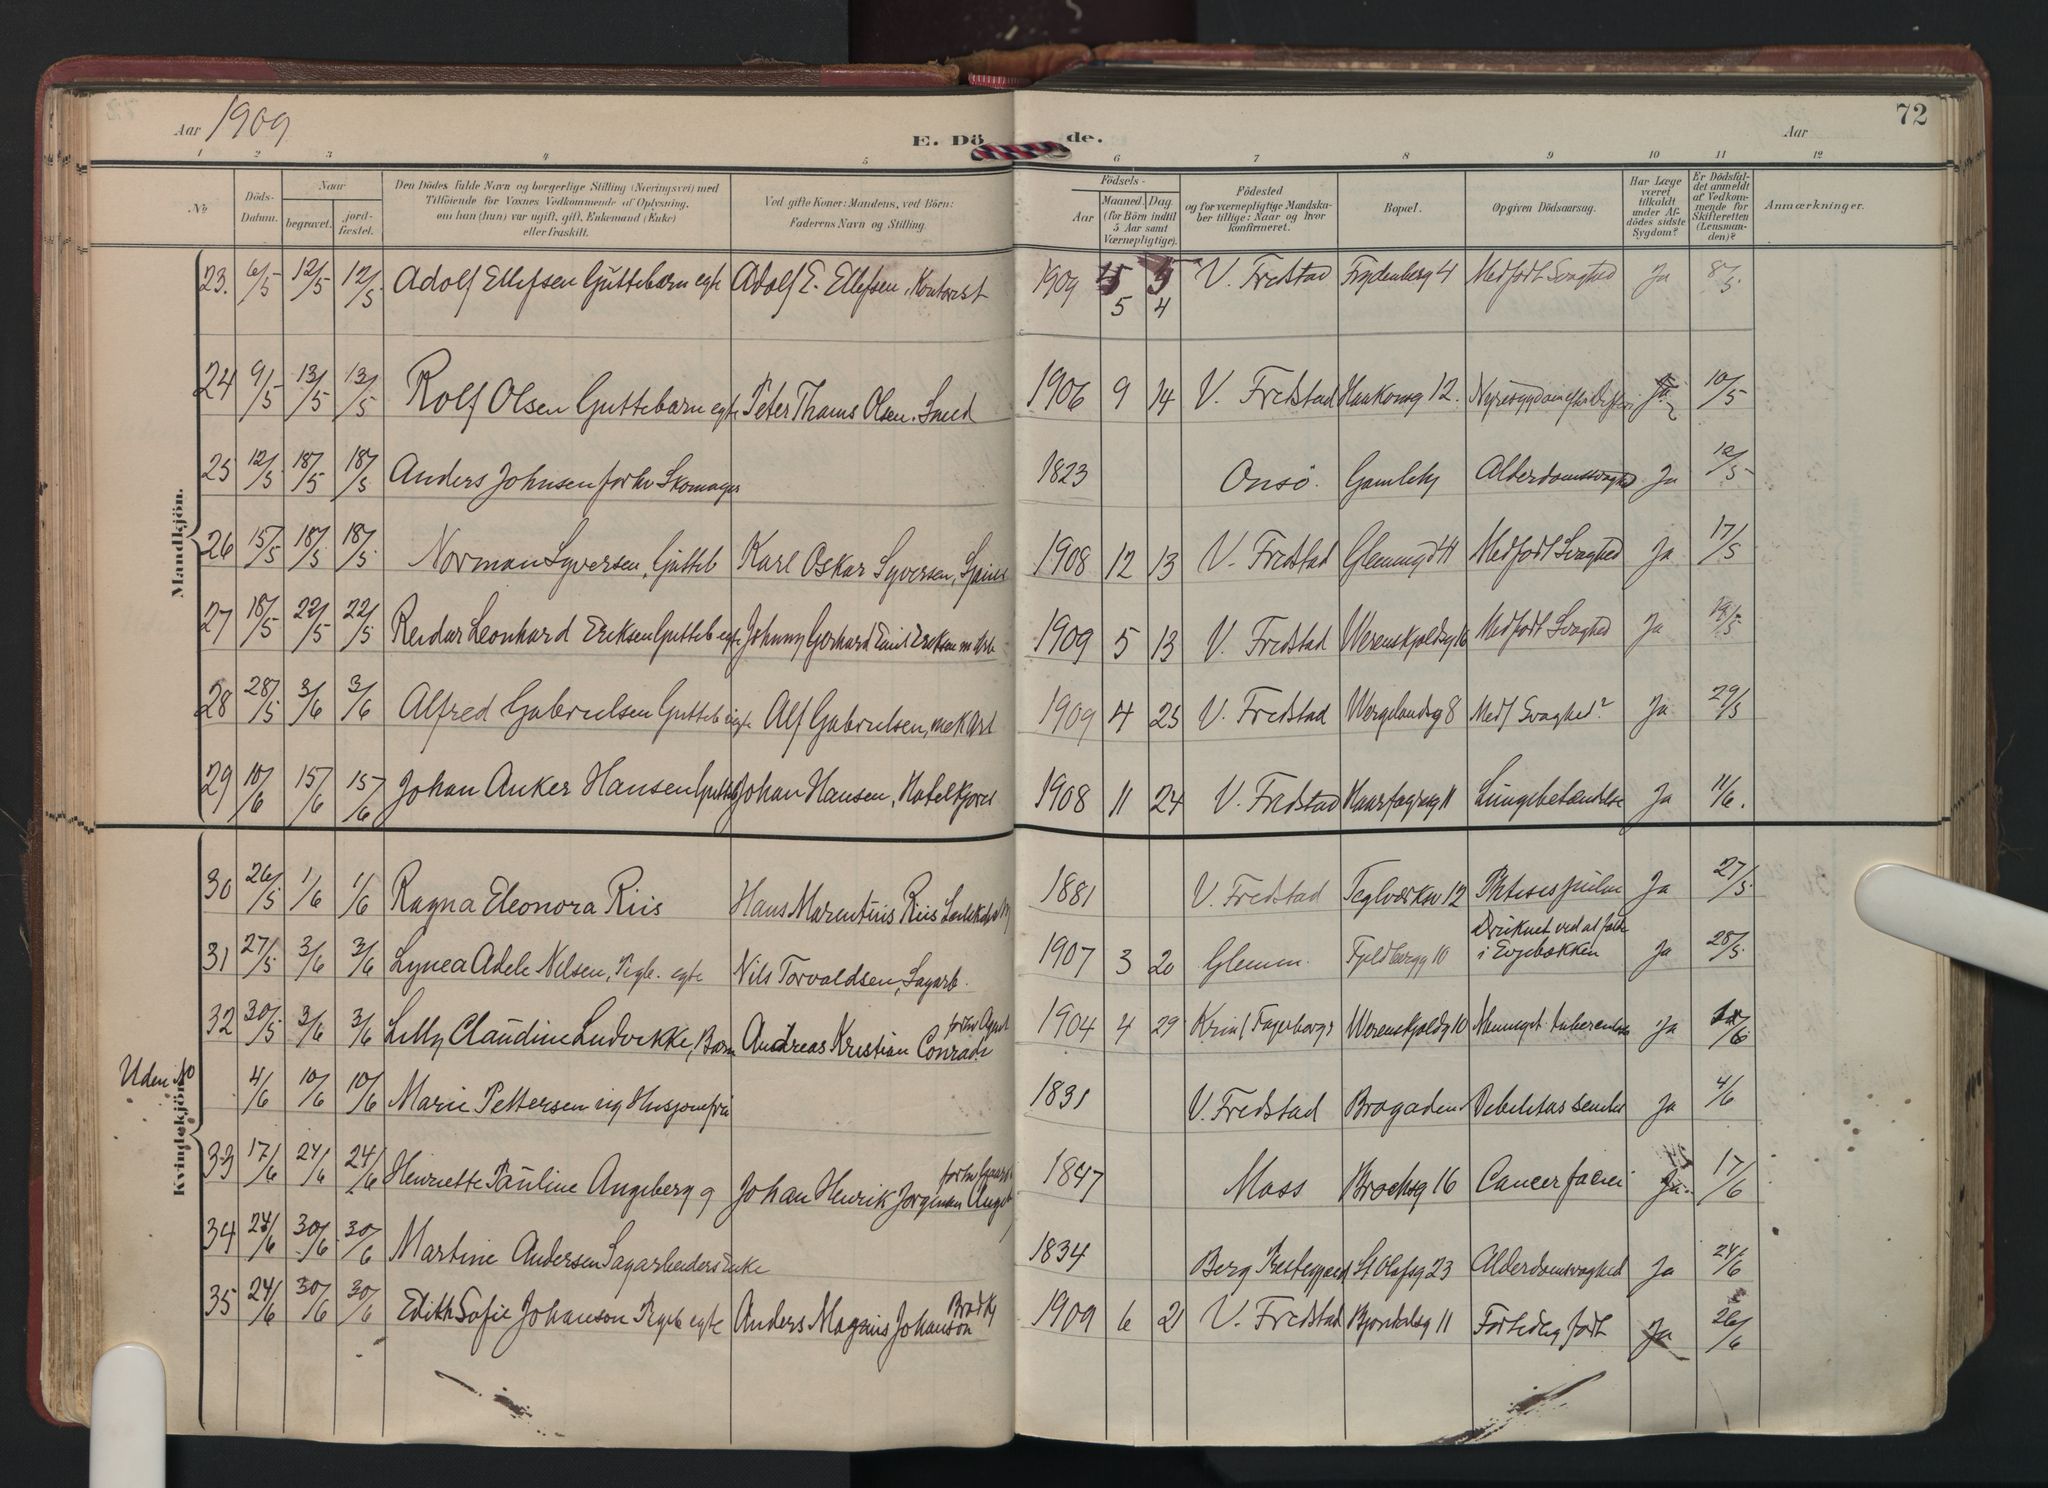 Aar 1909
E. Dö de.
Aar
72
1 2 3 4 5 6 7 8 9 10 11 12
No
Döds-Datum.
Naar
begravet.
jord-fæstet.
Den Dödes fulde Navn og borgerlige Stilling (Næringsvei) med
Tilföiende for Voxnes Vedkommende af Oplysning,
om han (hun) var ugift, gift, Enkemand (Enke)
eller fraskilt.
Ved gifte Koner: Mandens, ved Börn:
Faderens Navn og Stilling.
Födsels-
Aar
Maaned. Dag.
(for Börn indtil
5 Aar samt
Værnepligtige).
Födested
og for værnepligtige Mandska-
ber tillige: Naar og hvor
konfirmeret.
Bopæl.
Opgiven Dödsaarsag.
Har Læge
været
tilkaldt
under Af-
dödes sidste
Sygdom?
Er Dödsfal-
det anmeldt
af Vedkom-
mende for
Skifteretten
(Lensman-
den)?
Anmærkninger.
Mandkjön.
23. 6/5 12/5 12/5 Adolf Ellefsen Guttebarn egte Adolf E. Ellefsen, Kontorist 1909 5 4 V. Fredstad Frydenberg 4 Medfödt Svaghed Ja 8/5
24 9/5 13/5 13/5 Rolf Olsen Guttebarn egte Peter Thams Olsen. Smed 1906 9 14 V. Fredstad Haakonsg 12. Ja 10/5
25 12/5 18/5 18/5 Anders Johnsen forhv Skomager 1823 Onsö. Gamleby Alderdomssvaghed Ja 12/5
26 15/5 18/5 18/5 Norman Syversen, Gutteb Karl Oskar Syversen, 1908 12 13 V. Fredstad Medfödt Svaghed Ja 17/5
27 18/5 22/5 22/5 Reidar Leonhard Eriksen Gutteb egte Johnny Gerhard Emil Eriksen m Arb 1909 5 13 V. Fredstad Werenskjoldsg 16 Medfödt Svaghed Ja 19/5
28 28/5 3/6 3/6 Alfred Gabrielsen Gutteb egte Alf Gabrielsen, mek Arb 1909 4 25 V. Fredstad Wergelandsg 8 Medf Svaghed? Ja 29/5
29 10/6 15/6 15/6 Johan Anker Hansen Gutteb Johan Hansen, 1908 11 24 V. Fredstad Haarfagresg 11 Lungebetændelse Ja 11/6.
Kvindekjön.
30 26/5 1/6 1/6 Ragna Eleonora Riis Hans Marentius Riis 1881 V. Fredstad Teglværksv 12 Phtisis pulm Ja 27/5
31 27/5 3/6 3/6 Lynea Adele Nilsen, Pigeb. egte Nils Torvaldsen, Sagarb. 1907 3 20 Glemm. Fjeldbergg 10 Druknet ved at falde
i Evjebækken Ja 28/5
32 30/5 3/6 3/6 Lilly Claudine Ludvikke, Barn Andreas Kristian Conradi forhv Agent 1904 4 29 Werenskjoldsg 10 Ja /6
Uden No 4/6 10/6 10/6 Marie Pettersen ug Husjomfru 1831 V. Fredstad Brogaden Debilitas senilis Ja 4/6
33 17/6 24/6 24/6 Henriette Pauline Angeberg g Johan Henrik Jörginsen 1847 Moss Brochsg 16 Cancer faciei Ja. 17/6
34 24/6 30/6 30/6 Martine Andersen Sagarbeiders Enke 1834 Berg Prestegjæld St Olafsg 23 Alderdomsvaghed Ja 24/6
35 24/6 30/6 30/6 Edith Sofie Johanson Pigeb egte Anders Magnus Johanson 1909 6 21 V. Fredstad Bjørndalsg 11 Fortidlig født Ja 26/6